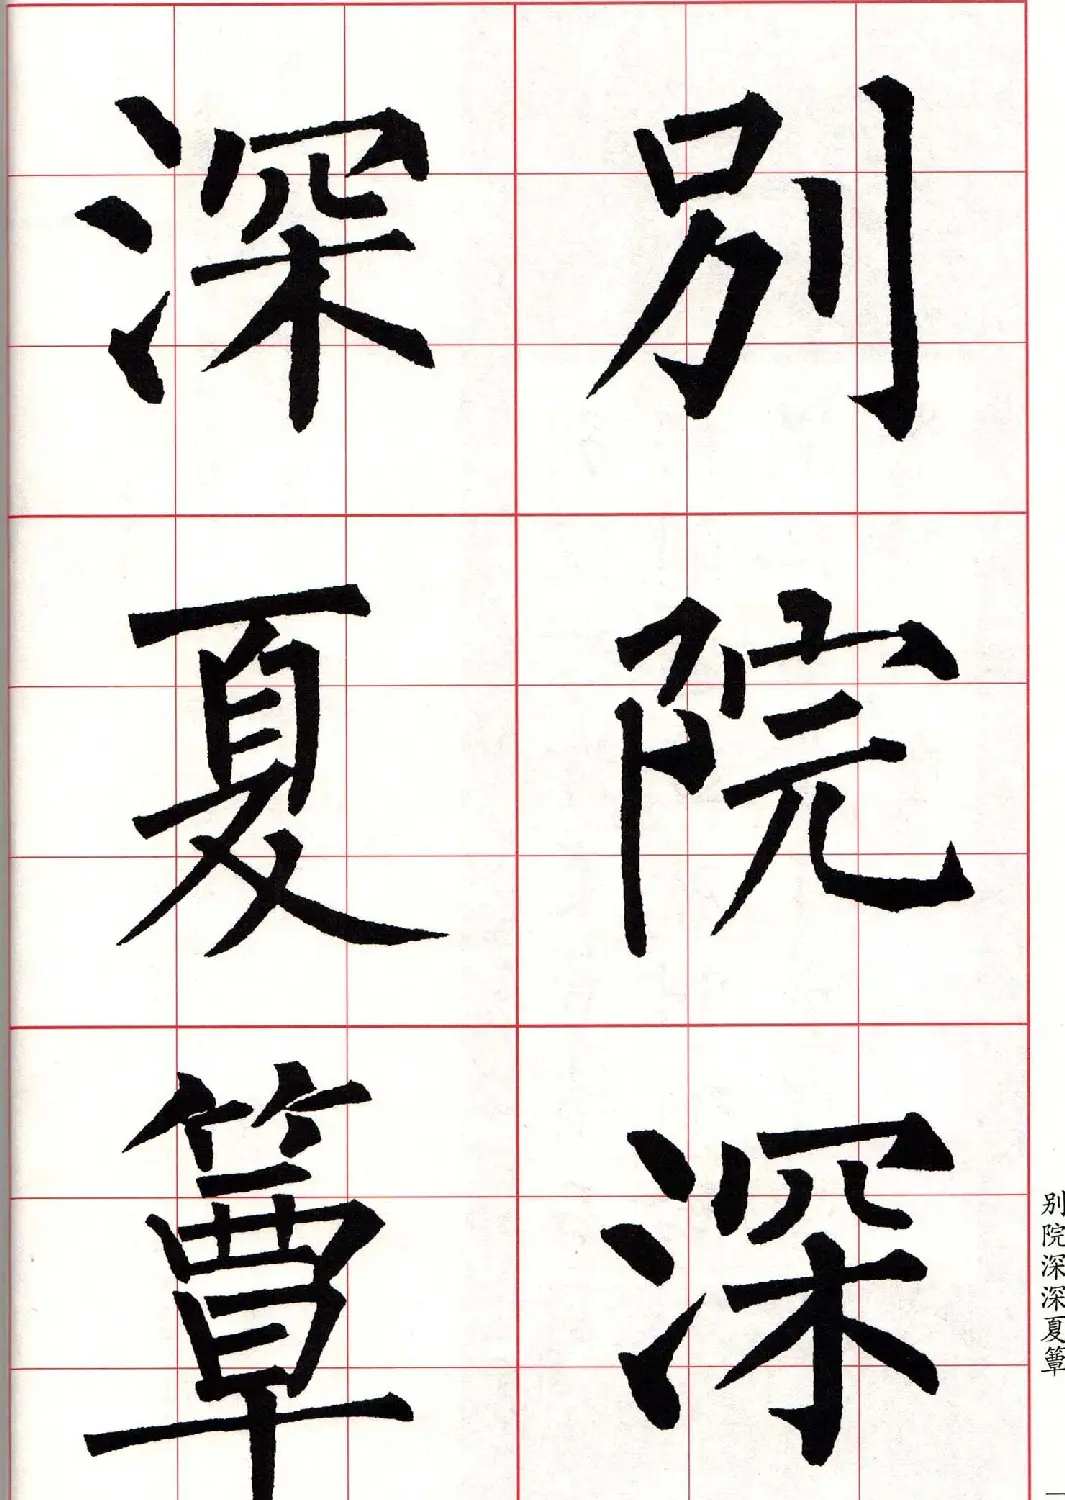 别院深
深夏簟
别院深深夏簟